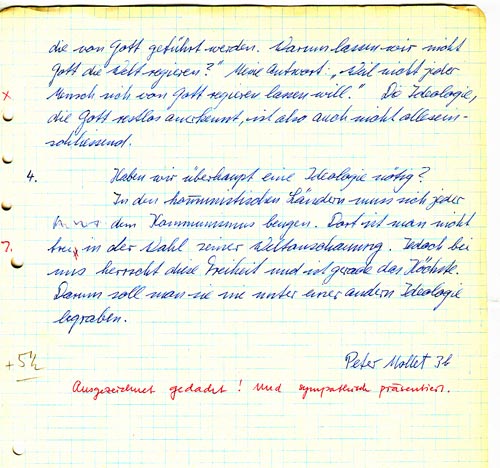 die von Gott geführt werden. Warum lassen wir nicht
Gott die Welt regieren?" Meine Antwort: „Weil nicht jeder
x Mensch sich von Gott regieren lassen will." Die Ideologie,
die Gott restlos anerkennt, ist also auch nicht allesein-
schliessend.
4. Haben wir überhaupt eine Ideologie nötig?
In den kommunistischen Ländern muss sich jeder
dem Kommunismus beugen. Dort ist man nicht
7. frei in der Wahl seiner Weltanschauung. Jedoch bei
uns herrscht diese Freiheit und ist gerade das Höchste.
Darum soll man sie nie unter einer andern Ideologie
begraben.
+5½
Peter Mollet 3b
Ausgezeichnet gedacht! Und sympathisch präsentiert.